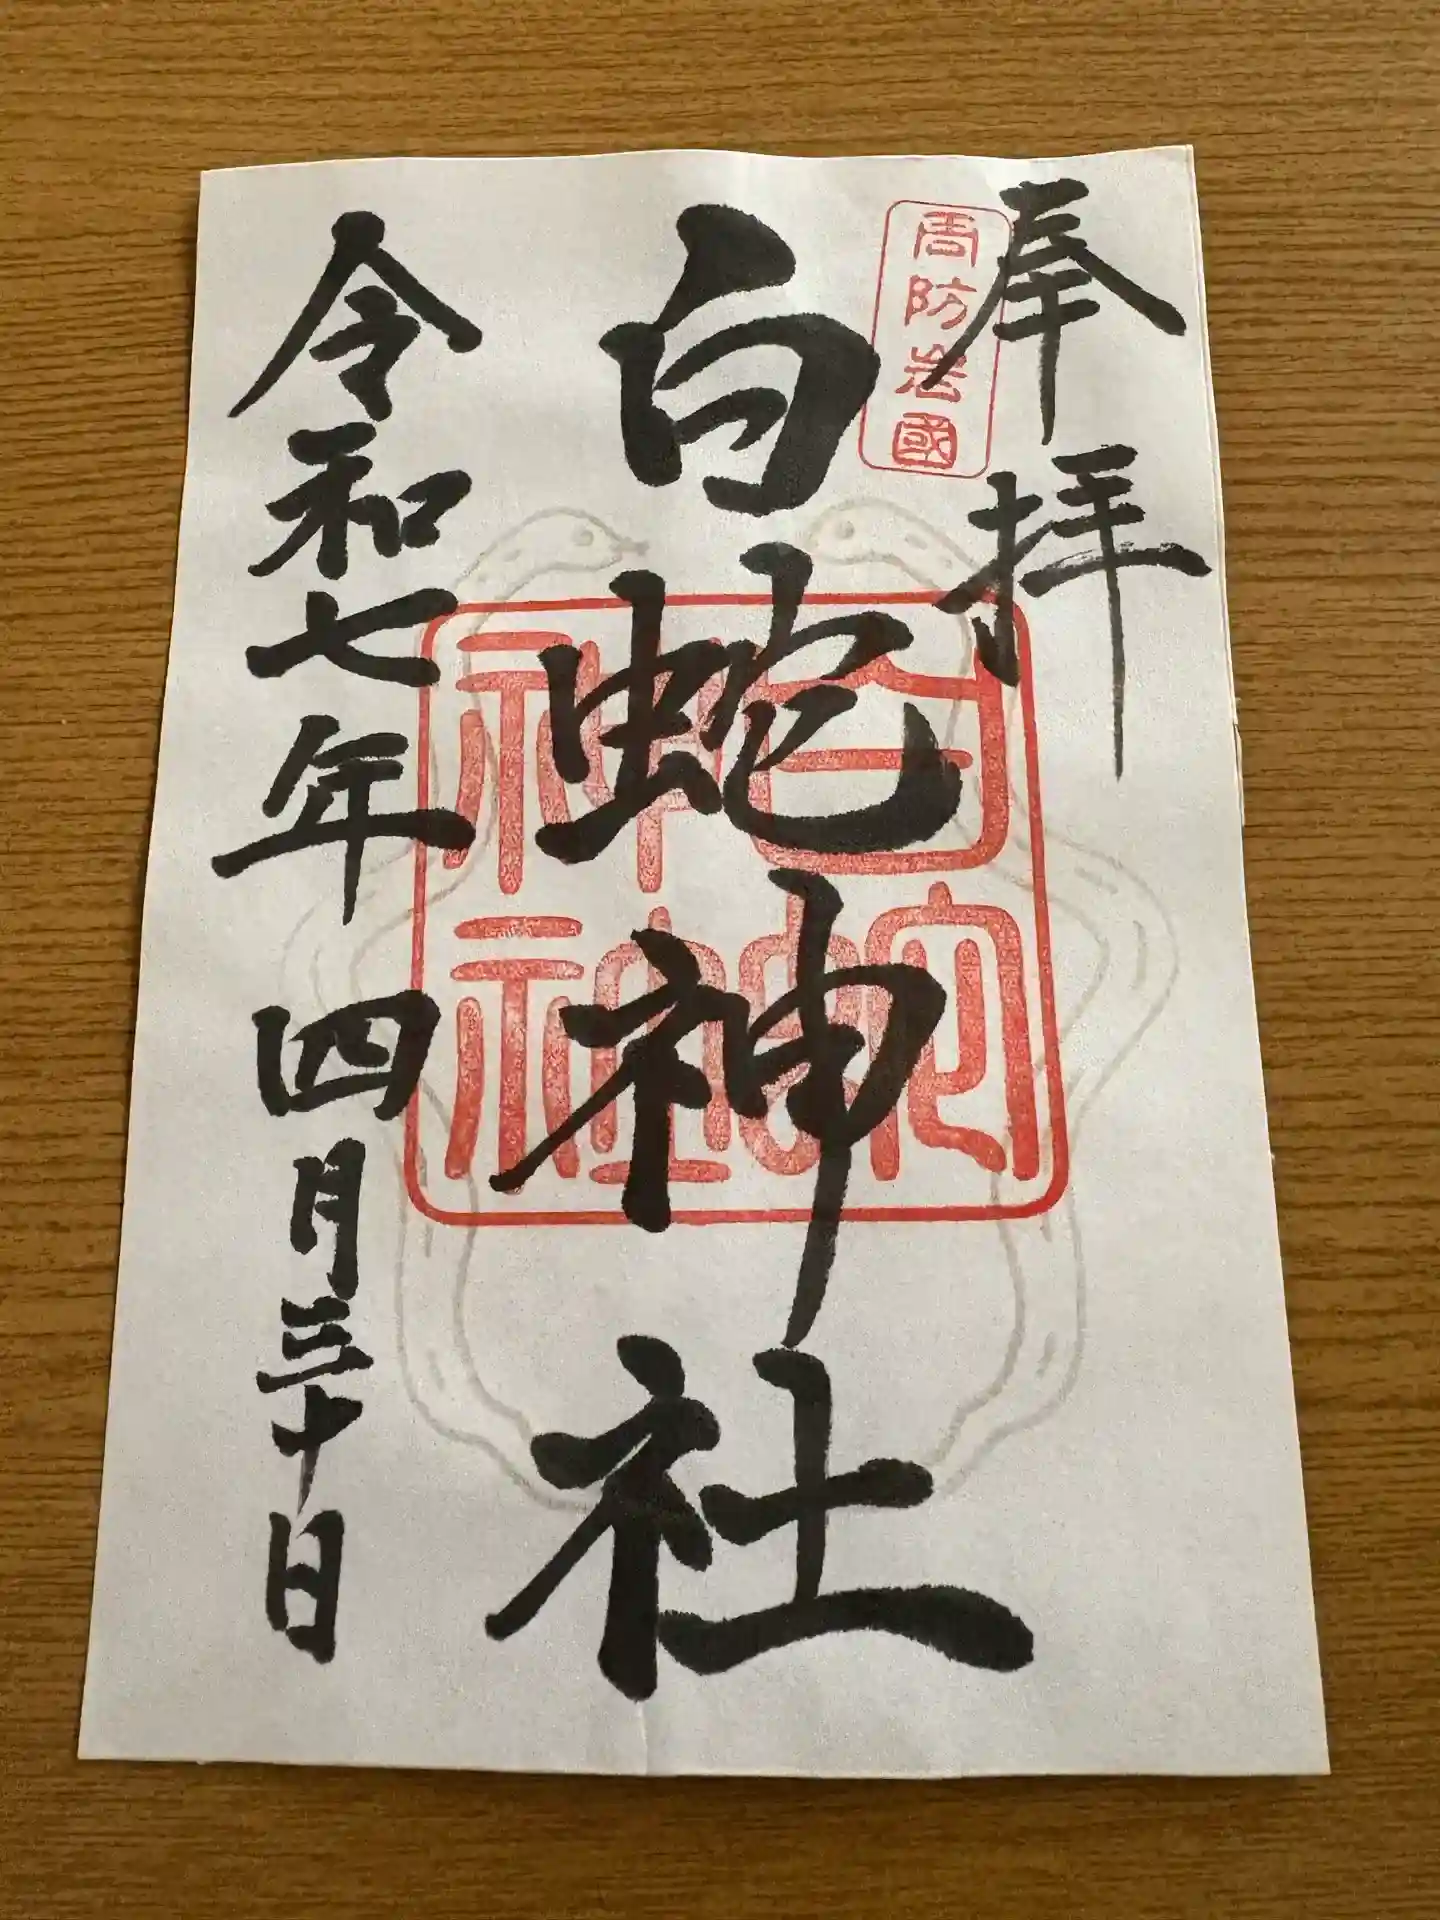 奉拝
周防岩國
白蛇神社
白蛇
神社
令和七年四月三十日